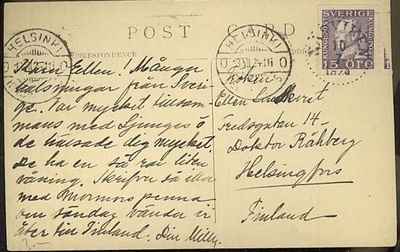 POST CARD
HELSINKI
HELSINKI
SVERIGE
15 ÖRE
1874
CORRESPONDENCE
Kära Ellen! Många
hälsningar från Sveri-
ge. Var mycket tillsam-
mans med Ljunggs ö
de hälsade dig mycket.
De ha en så rar liten
våning. Skrifver så illa
med Mormors penna
om söndag vända vi
åter till Finland. Din Milly.
Ellen
Fredsgatan 14
Doktor Råhberg
Helsingfors
Finland